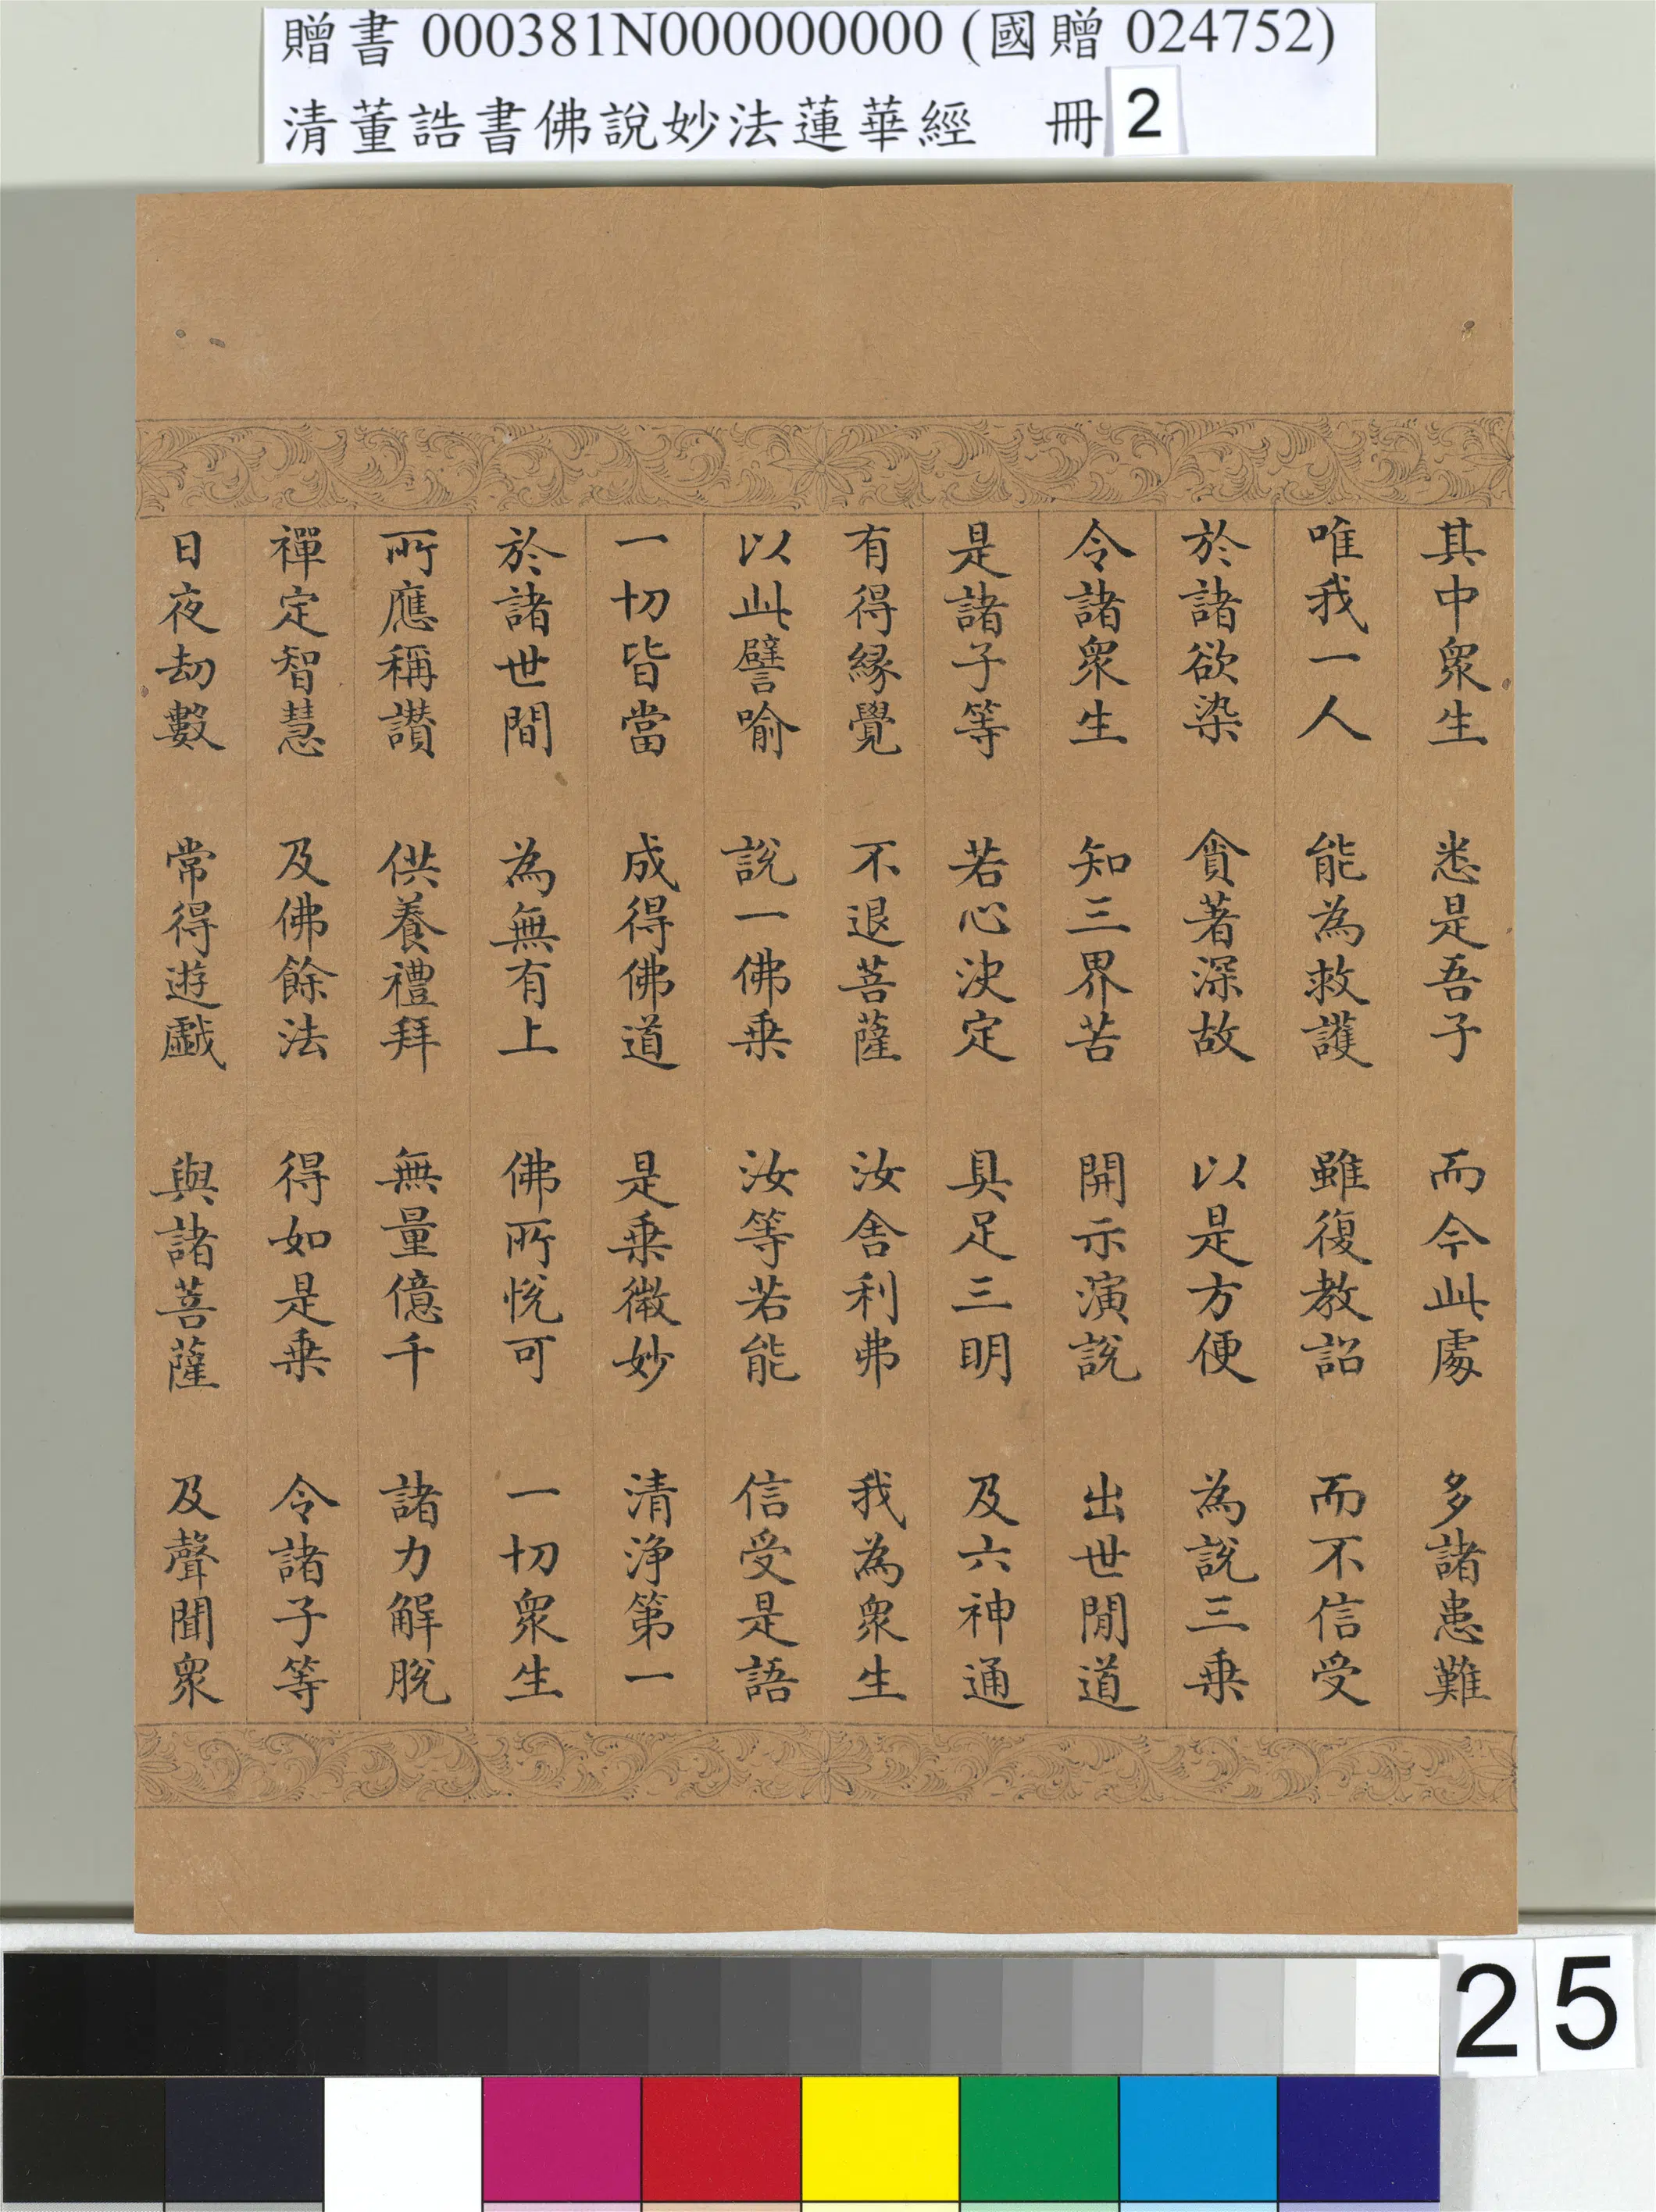 贈書 000381N000000000 (國贈 024752)
清董誥書佛說妙法蓮華經 冊 2
其中衆生 悉是吾子 而今此處 多諸患難
唯我一人 能為救護 雖復教詔 而不信受
於諸欲染 貪著深故 以是方便 為說三乗
令諸衆生 知三界苦 開示演說 出世間道
是諸子等 若心決定 具足三明 及六神通
有得縁覺 不退菩薩 汝舍利弗 我為衆生
以此譬喻 說一佛乗 汝等若能 信受是語
一切皆當 成得佛道 是乗微妙 清浄第一
於諸世間 為無有上 佛所悅可 一切衆生
所應稱讃 供養禮拜 無量億千 諸力解脫
禪定智慧 及佛餘法 得如是乗 令諸子等
日夜劫數 常得遊戲 與諸菩薩 及聲聞衆
25